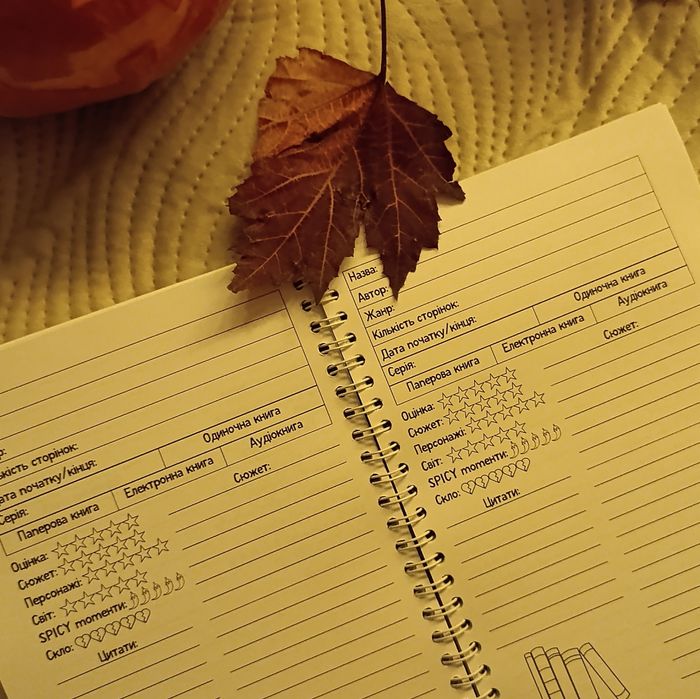 р:
кість сторінок:
ата початку/кінця:
Серія:
Одиночна книга
Паперова книга
Електронна книга
Аудіокнига
Оцінка:
Сюжет:
Персонажі:
Світ:
SPICY моменти:
Скло:
Цитати:
Сюжет:
Назва:
Автор:
Жанр:
Кількість сторінок:
Дата початку/кінця:
Серія:
Одиночна книга
Паперова книга
Електронна книга
Аудіокнига
Оцінка:
Сюжет:
Персонажі:
Світ:
SPICY моменти:
Скло:
Цитати:
Сюжет: